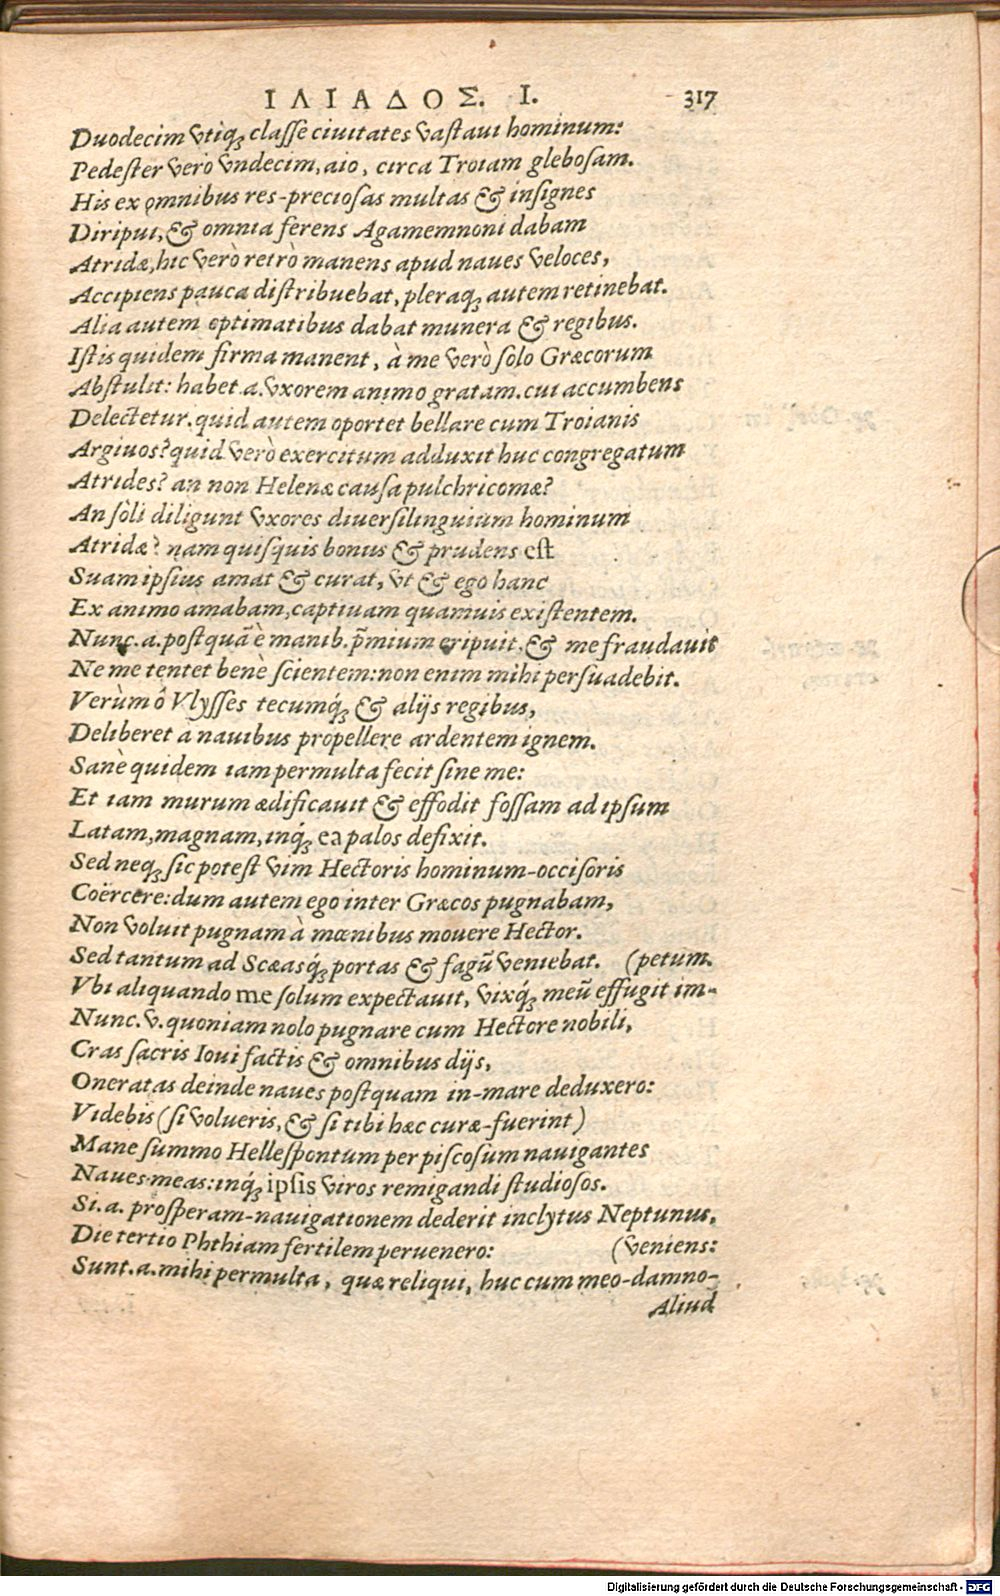 ΙΛΙΑΔΟΣ. Ι. 317
Duodecim vtiq; classe ciuitates vastaui hominum:
Pedester verò vndecim, aio, circa Troiam glebosam.
His ex omnibus res-preciosas multas & insignes
Diripui, & omnia ferens Agamemnoni dabam
Atridæ, hic verò retrò manens apud naues veloces,
Accipiens pauca distribuebat, pleraq; autem retinebat.
Alia autem optimatibus dabat munera & regibus.
Istis quidem firma manent, à me verò solo Græcorum
Abstulit: habet.a.vxorem animo gratam. cui accumbens
Delectetur. quid autem oportet bellare cum Troianis
Argiuos? quid verò exercitum adduxit huc congregatum
Atrides? an non Helenæ causa pulchricomæ?
An sòli diligunt vxores diuersilinguium hominum
Atridæ? nam quisquis bonus & prudens est
Suam ipsius amat & curat, vt & ego hanc
Ex animo amabam, captiuam quamuis existentem.
Nunc.a.postquã è manib. p̃mium eripuit, & me fraudauit
Ne me tentet benè scientem: non enim mihi persuadebit.
Verùm ô Vlysses tecumq́; & alijs regibus,
Deliberet a nauibus propellere ardentem ignem.
Sanè quidem iam permulta fecit sine me:
Et iam murum ædificauit & effodit fossam ad ipsum
Latam, magnam, inq́; ea palos defixit.
Sed neq; sic potest vim Hectoris hominum-occisoris
Coërcere: dum autem ego inter Græcos pugnabam,
Non voluit pugnam à mœnibus mouere Hector.
Sed tantum ad Scæasq́; portas & fagũ veniebat. (petum.
Vbi aliquando me solum expectauit, vixq́; meũ effugit im-
Nunc.v.quoniam nolo pugnare cum Hectore nobili,
Cras sacris Ioui factis & omnibus dijs,
Oneratas deinde naues postquam in-mare deduxero:
Videbis (si volueris, & si tibi hæc curæ-fuerint)
Mane summo Hellespontum per piscosum nauigantes
Naues meas: inq́; ipsis viros remigandi studiosos.
Si.a. prosperam-nauigationem dederit inclytus Neptunus,
Die tertio Phthiam fertilem peruenero: (veniens:
Sunt.a.mihi permulta, quæ reliqui, huc cum meo-damno-
Aliud
Digitalisierung gefördert durch die Deutsche Forschungsgemeinschaft - DFG